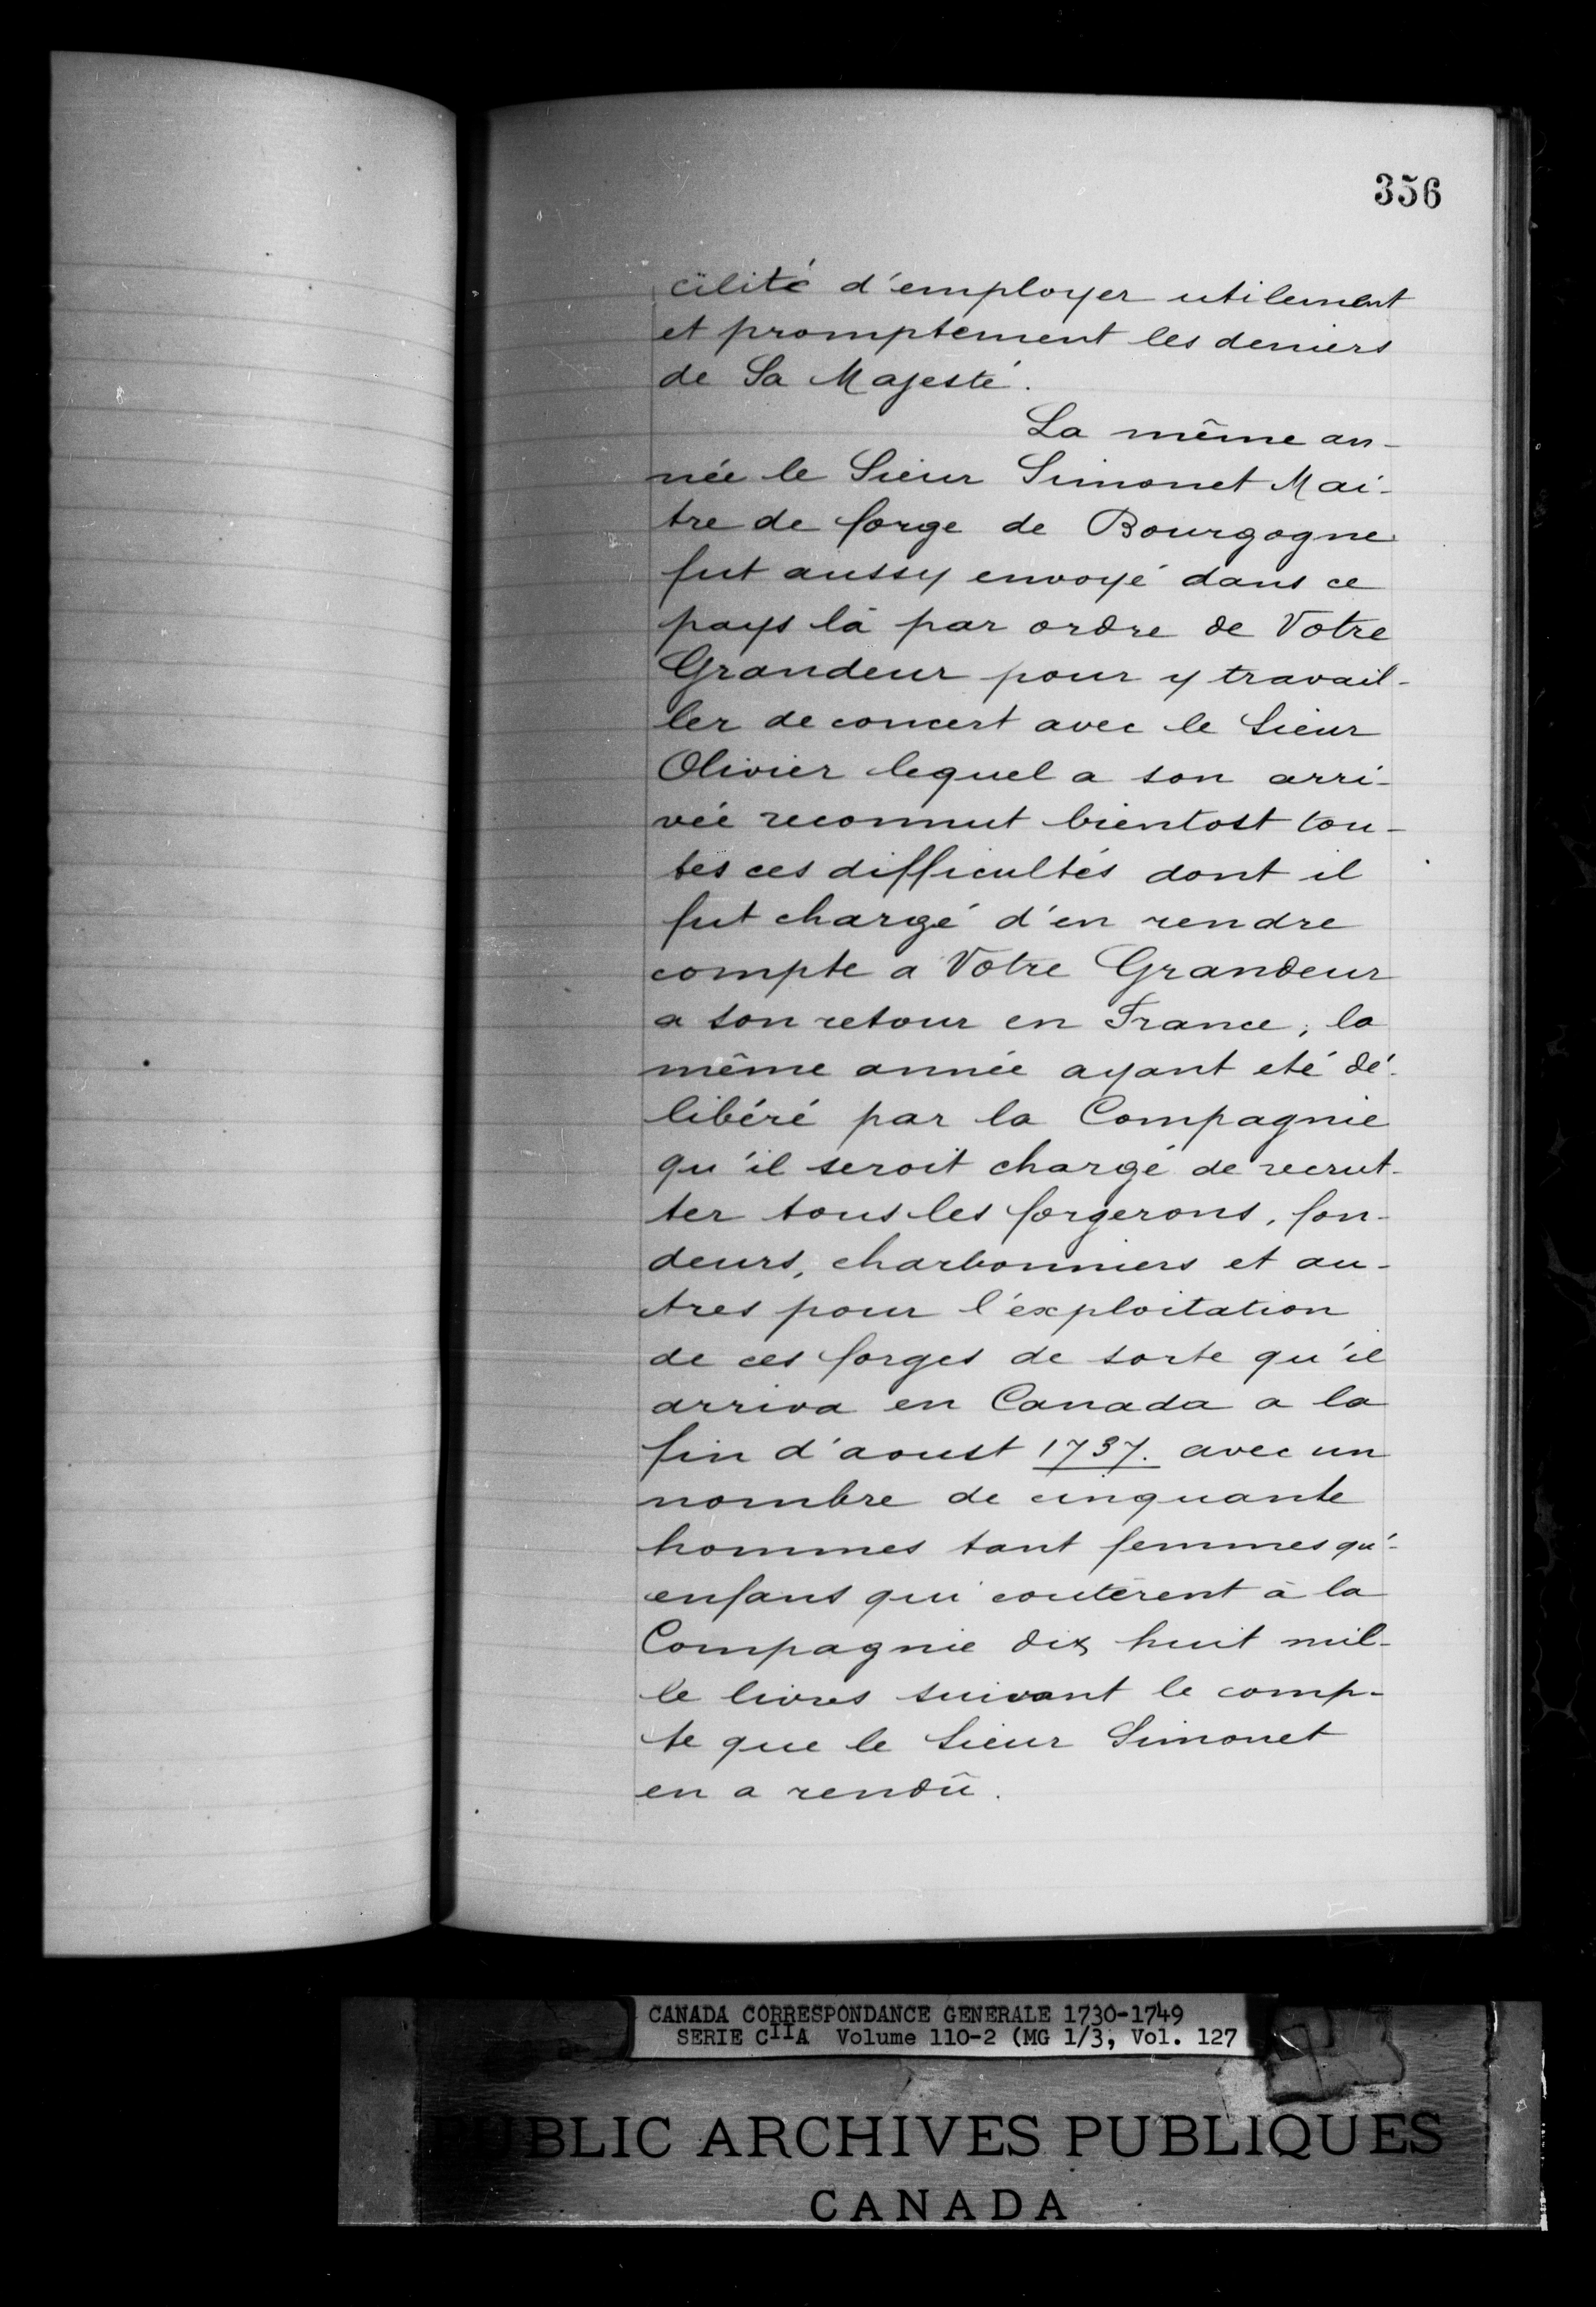 356
cilité d'employer utilement
et promptement les deniers
de Sa Majesté.
La même an-
née le Sieur Simonet Mai-
tre de forge de Bourgogne
fut aussy envoyé dans ce
pays là par ordre de Votre
Grandeur pour y travail-
ler de concert avec le Sieur
Olivier lequel a son arri-
vée reconnut bientost tou-
tes ces difficultés dont il
fut chargé d'en rendre
compte a Votre Grandeur
a son retour en France; la
même année ayant eté dé-
libéré par la Compagnie
qu'il seroit chargé de recrut-
ter tous les forgerons, fon-
deurs, charbonniers et au-
tres pour l'exploitation
de ces forges de sorte qu'il
arriva en Canada a la
fin d'aoust 1737. avec un
nombre de cinquante
hommes tant femmes qu'-
enfans qui coutèrent à la
Compagnie dix huit mil-
le livres suivant le comp-
te que le Sieur Simonet
en a rendû.
CANADA CORRESPONDANCE GENERALE 1730-1749
SERIE CIIA Volume 110-2 (MG 1/3, Vol. 127
PUBLIC ARCHIVES PUBLIQUES
CANADA